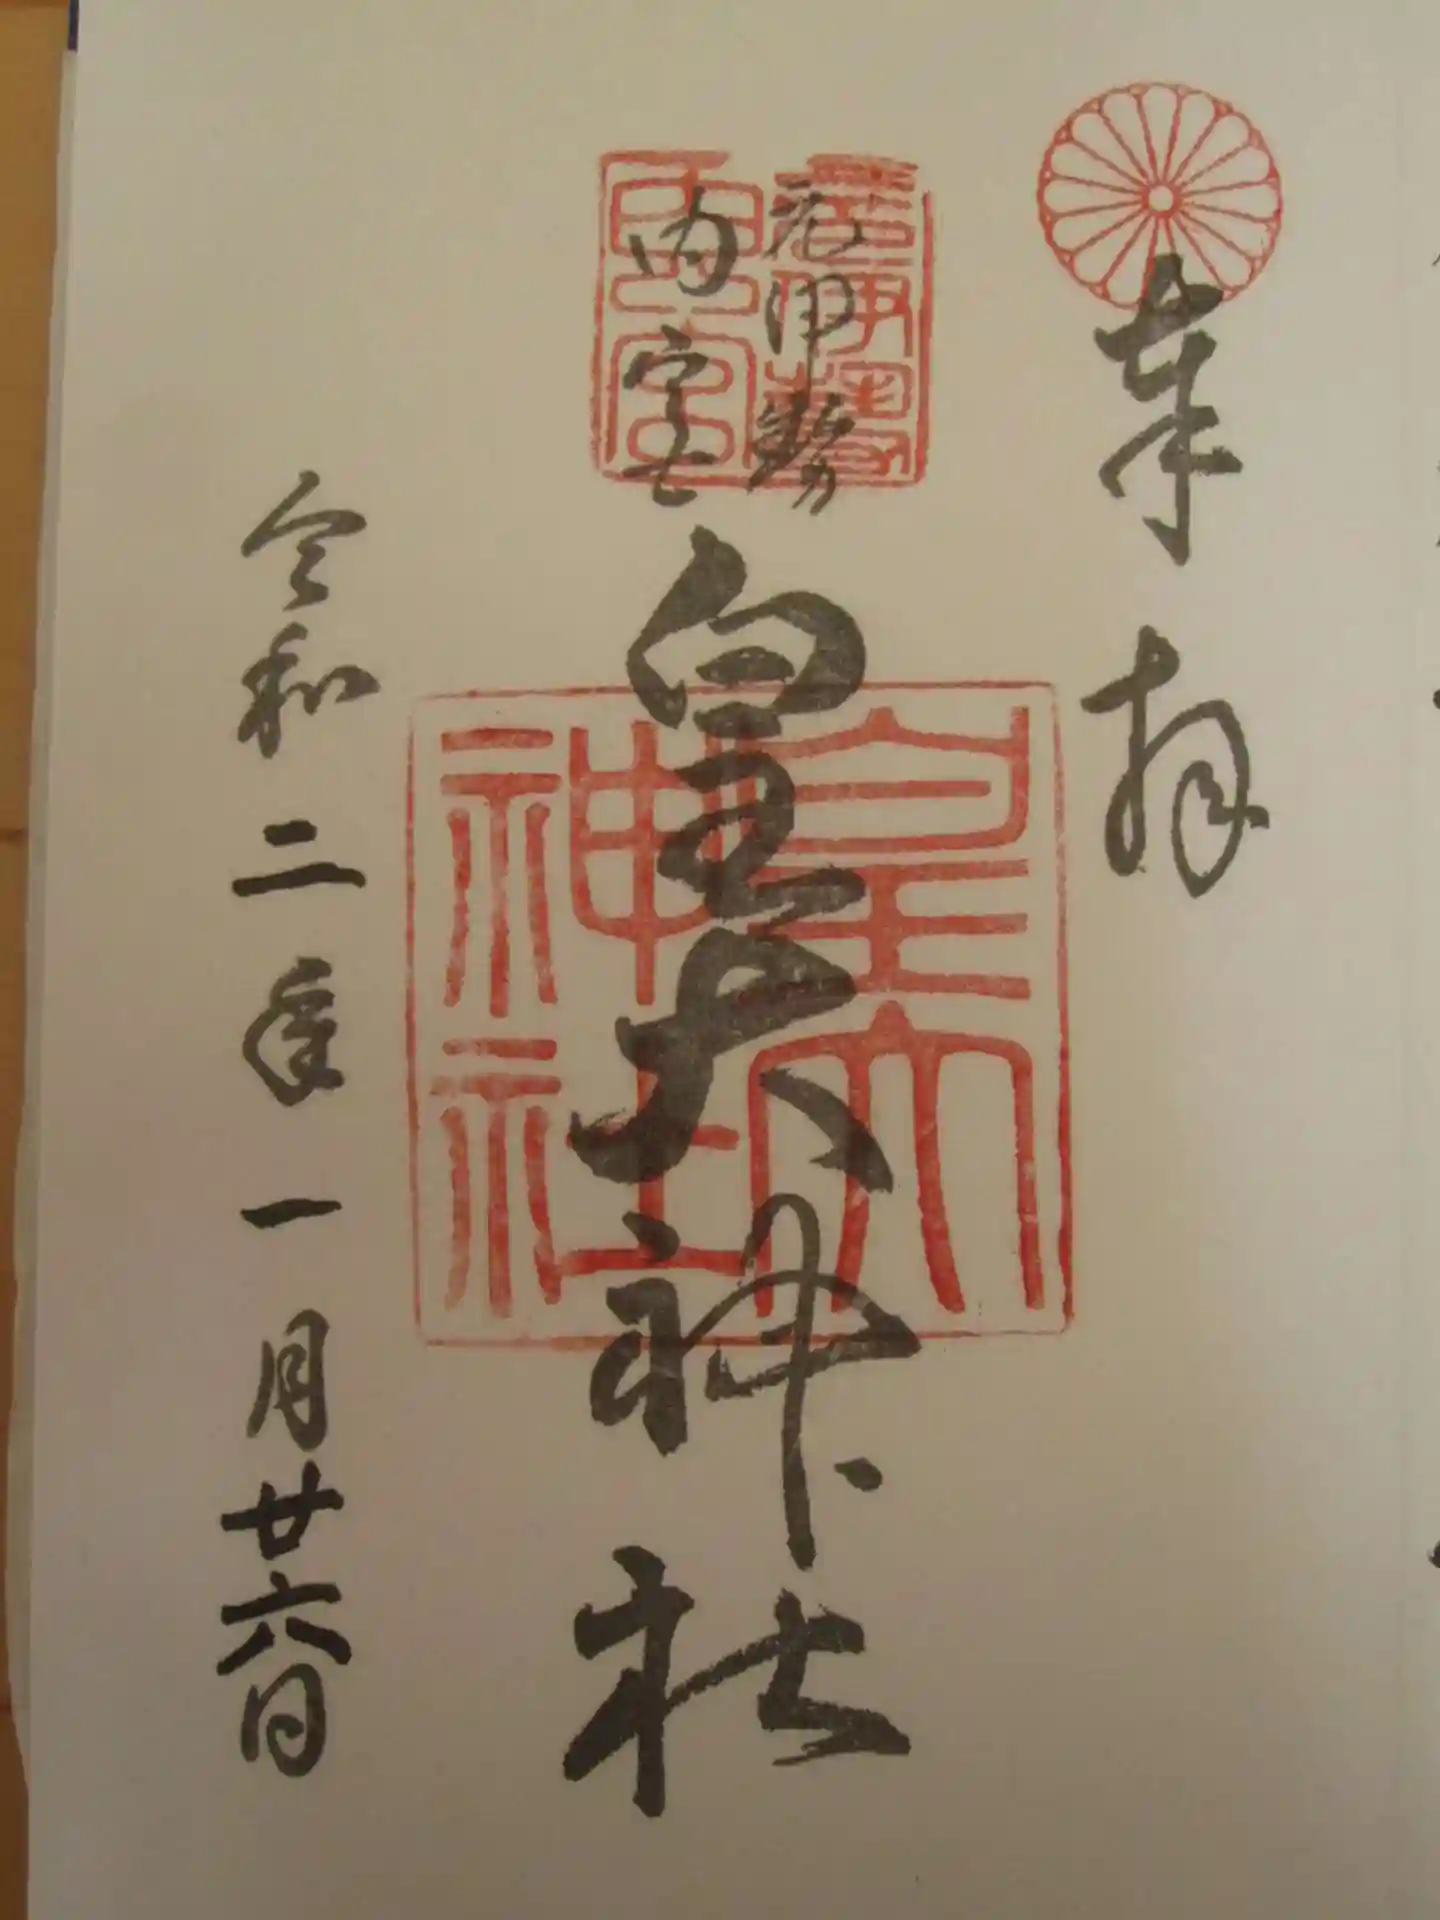 奉拝
元伊勢
内宮
皇大神社
令和二年一月廿六日
元伊勢
内宮
皇大
神社